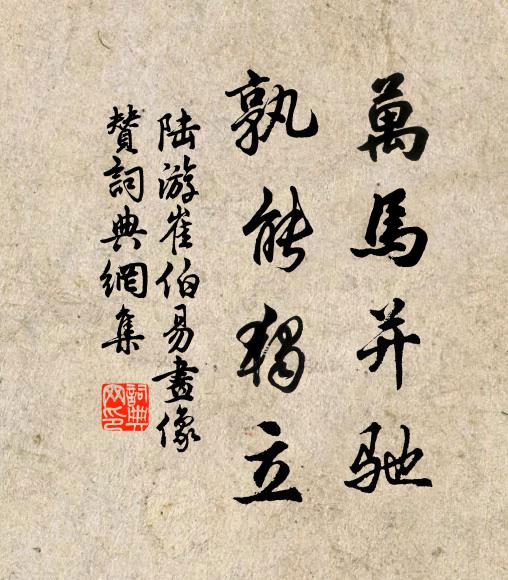 萬馬并馳
孰能獨立
陸游崔伯易畫像
贊詞典網集
詞典
网印